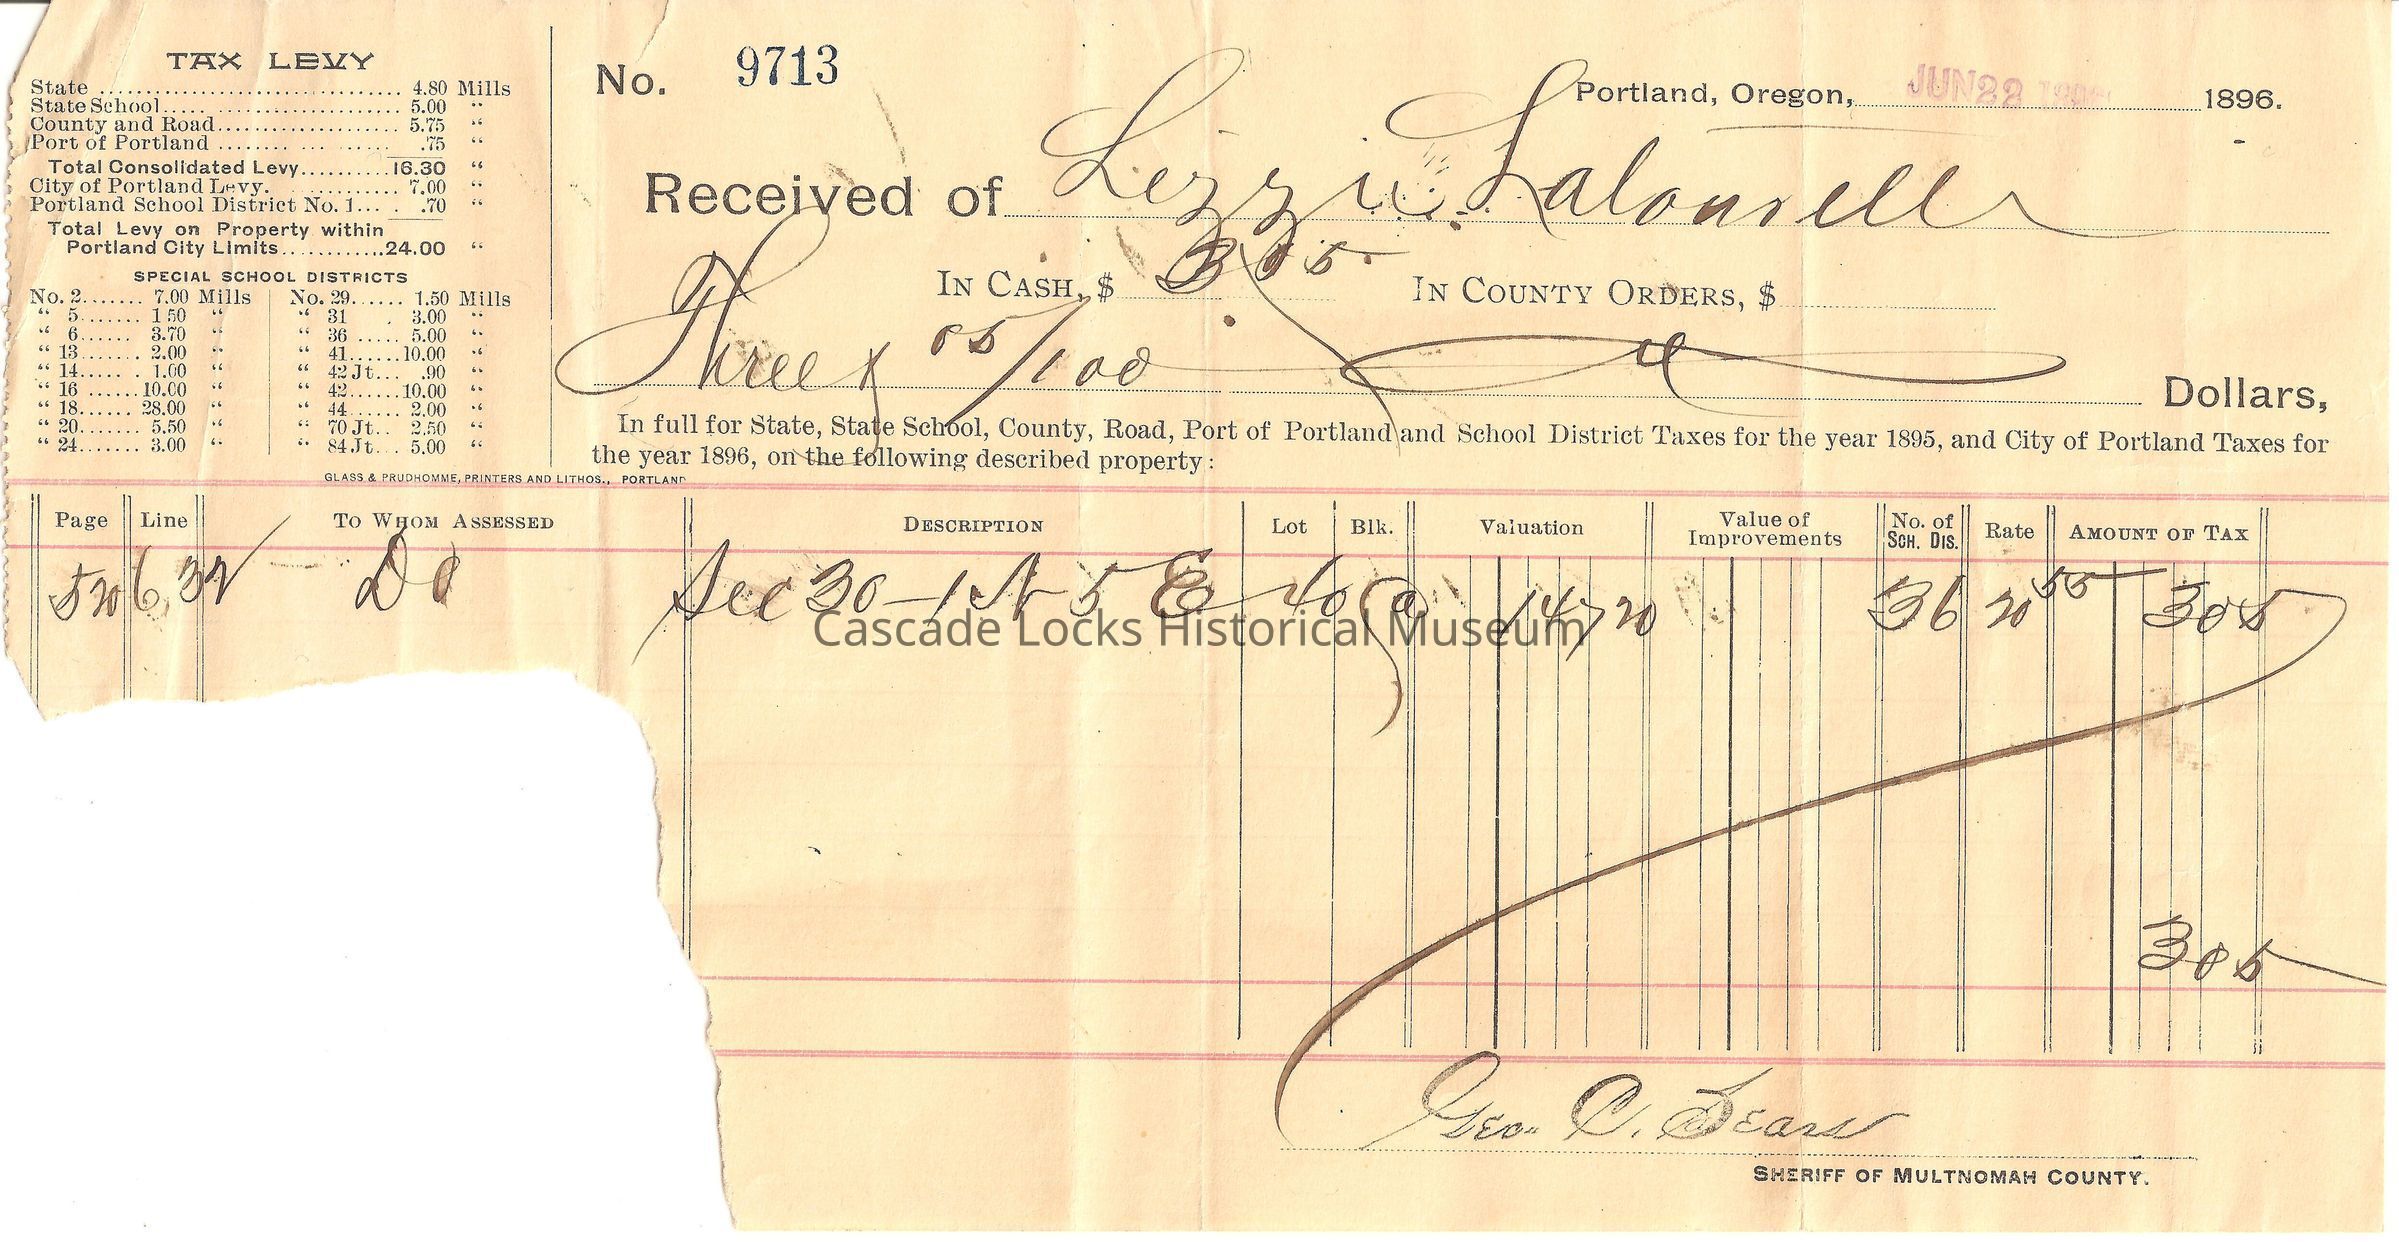 TAX LEVY
State ........ 4.80 Mills
State School ........ 5.00 "
County and Road ........ 5.75 "
Port of Portland ........ .75 "
Total Consolidated Levy ........ 16.30 "
City of Portland Levy. ........ 7.00 "
Portland School District No. 1 ... .70 "
Total Levy on Property within
Portland City Limits ........ 24.00 "
SPECIAL SCHOOL DISTRICTS
No. 2 ....... 7.00 Mills No. 29 ...... 1.50 Mills
" 5 ....... 1 50 " " 31 . 3.00 "
" 6 ...... 3.70 " " 36 ..... 5.00 "
" 13 ....... 2.00 " " 41 ...... 10.00 "
" 14 ..... 1.00 " " 42 Jt ... .90 "
" 16 ...... 10.00 " " 42 ...... 10.00 "
" 18 ...... 28.00 " " 44 ...... 2.00 "
" 20 ....... 5.50 " " 70 Jt .. 2.50 "
" 24 ....... 3.00 " " 84 Jt ... 5.00 "
GLASS & PRUDHOMME, PRINTERS AND LITHOS., PORTLAND
No. 9713
Portland, Oregon, JUN 22 1896.
Received of Lizzie
IN CASH, $ 3 05 IN COUNTY ORDERS, $
Three & 05/100 Dollars,
In full for State, State School, County, Road, Port of Portland and School District Taxes for the year 1895, and City of Portland Taxes for
the year 1896, on the following described property:
Page Line TO WHOM ASSESSED DESCRIPTION Lot Blk. Valuation Value of Improvements No. of SCH. DIS. Rate AMOUNT OF TAX
526 32 Do Sec 30 - 1 N 5 E 40 a 147 20 36 20 55 3 05
Cascade Locks Historical Museum
3 05
Geo. C. Sears
SHERIFF OF MULTNOMAH COUNTY.